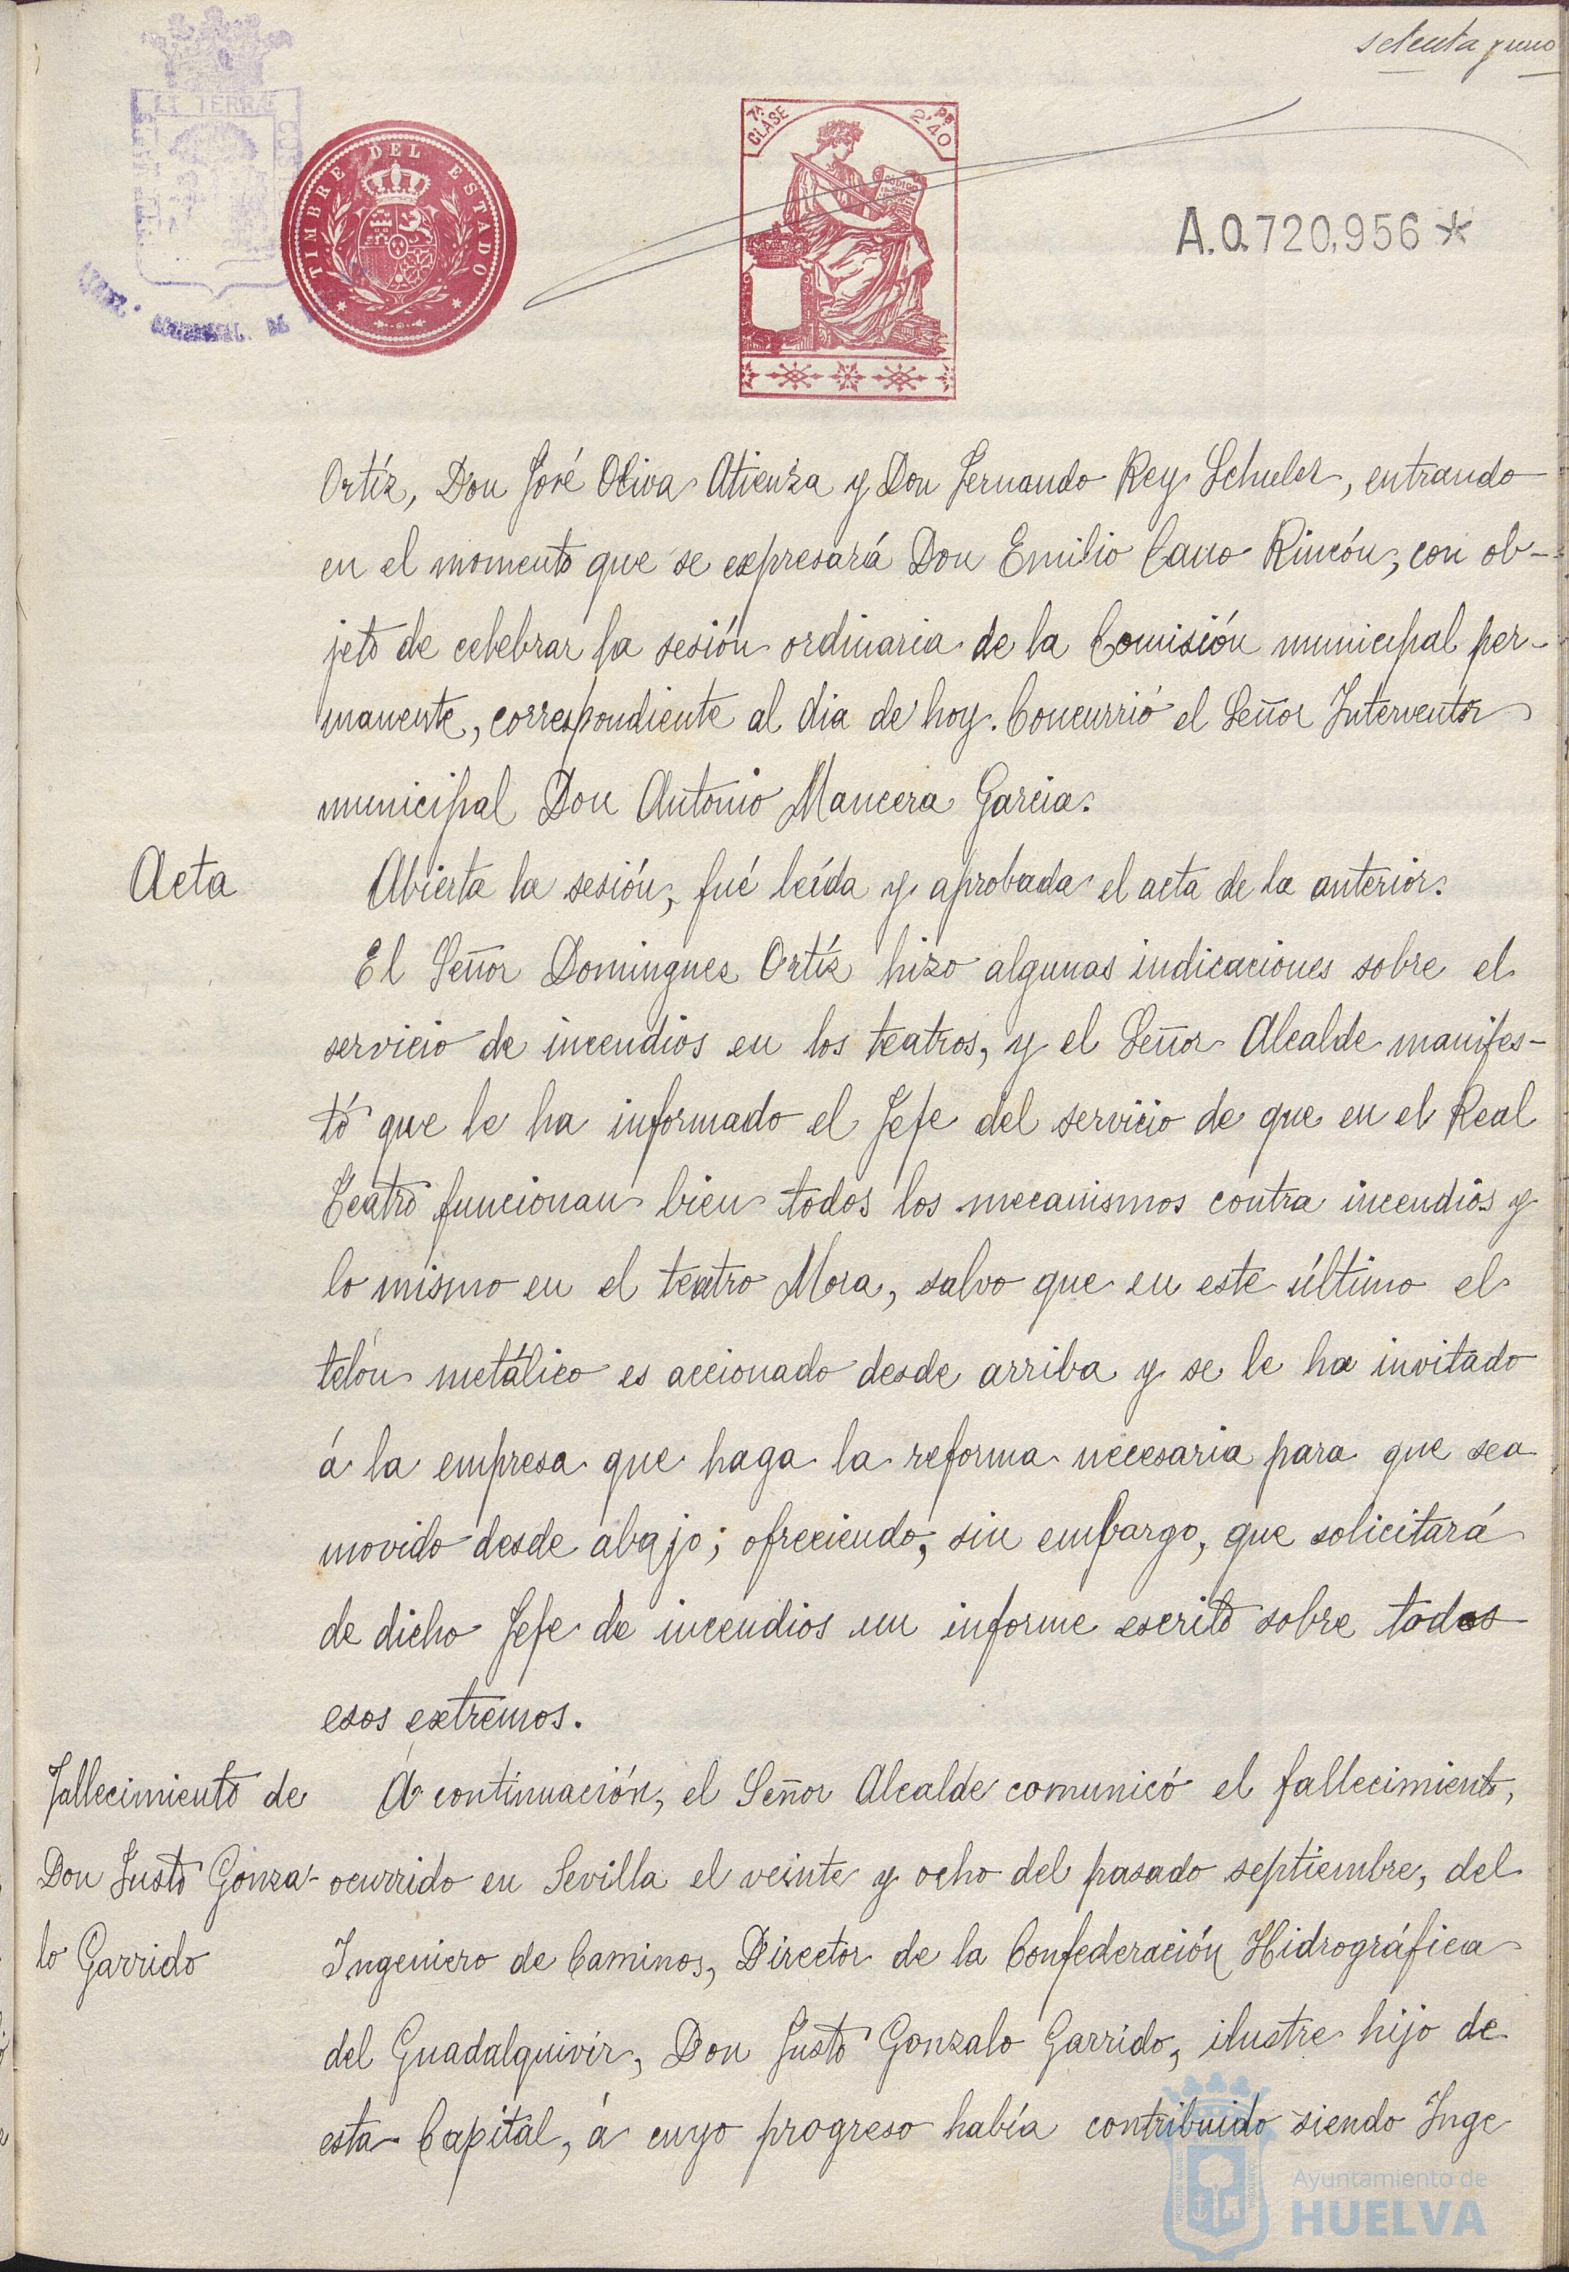 setenta y uno
ET TERRÆ
TIMBRE DEL ESTADO
7ª CLASE
2'40 PS
CÓDIGO
A.0.720,956 *
Ortíz, Don José Oliva Atienza y Don Fernando Rey Schuler, entrando
en el momento que se expresará Don Emilio Cano Rincón, con ob-
jeto de celebrar la sesión ordinaria de la Comisión municipal per-
manente, correspondiente al dia de hoy. Concurrió el Señor Interventor
municipal Don Antonio Mancera Garcia.
Acta
Abierta la sesión, fué leída y aprobada el acta de la anterior.
El Señor Domingues Ortíz hizo algunas indicaciones sobre el
servicio de incendios en los teatros, y el Señor Alcalde manifes-
tó que le ha informado el Jefe del servicio de que en el Real
Teatro funcionan bien todos los mecanismos contra incendios y
lo mismo en el teatro Mora, salvo que en este último el
telón metálico es accionado desde arriba y se le ha invitado
á la empresa que haga la reforma necesaria para que sea
movido desde abajo; ofreciendo, sin embargo, que solicitará
de dicho Jefe de incendios un informe escrito sobre todos
esos extremos.
Fallecimiento de
Don Justo Gonza-
lo Garrido
Á continuación, el Señor Alcalde comunicó el fallecimiento,
ocurrido en Sevilla el veinte y ocho del pasado septiembre, del
Ingeniero de Caminos, Director de la Confederación Hidrográfica
del Guadalquivir, Don Justo Gonzalo Garrido, ilustre hijo de
esta Capital, á cuyo progreso había contribuido siendo Inge
Ayuntamiento de
HUELVA